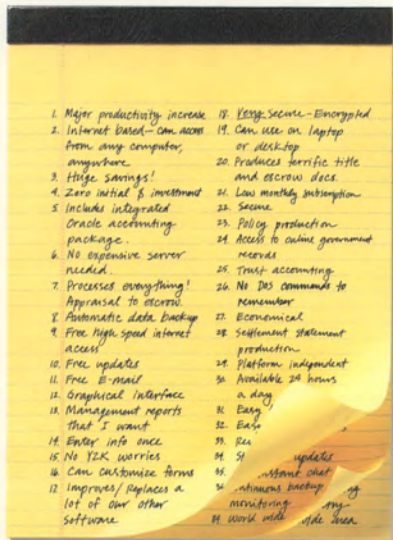 1. Major productivity increase
2. Internet based - can access
from any computer,
anywhere
3. Huge savings!
4. Zero initial $ investment
5. Includes integrated
Oracle accounting
package.
6. No expensive server
needed.
7. Processes everything!
Appraisal to escrow.
8. Automatic data backup
9. Free high speed internet
access
10. Free updates
11. Free E-mail
12. Graphical interface
13. Management reports
that I want
14. Enter info once
15. No Y2K worries
16. Can customize forms
17. Improves/Replaces a
lot of our other
software
18. Very secure - Encrypted
19. Can use on laptop
or desktop
20. Produces terrific title
and escrow docs.
21. Low monthly subscription
22. Secure
23. Policy production
24. Access to online government
records
25. Trust accounting
26. No DOS commands to
remember
27. Economical
28. Settlement statement
production
29. Platform independent
30. Available 24 hours
a day
31. Easy
32.
33.
34. updates
35. chat
36. backup
monitoring
World wide area